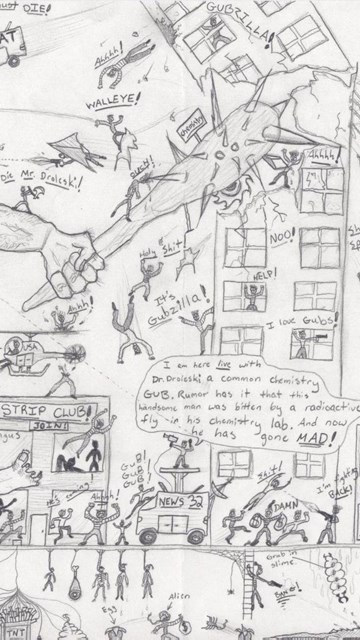 DIE!
GUBZILLA!
AT
Ahhh!
WALLEYE!
Die Mr. Droleski!
Ahhhh!
NOO!
Holy Shit!
HELP!
It's
Gubzilla!
Ahhh!
I love Gubs!
USA
I am here live with
Dr. Droleski a common chemistry
GUB. Rumor has it that this
handsome man was bitten by a radioactive
fly in his chemistry lab. And now
he has gone MAD!
STRIP CLUB!
JOIN!!
GUB!
GUB!
GUB!
Ahhhh!
NEWS 32
Shit!
DAMN
I'm
BACK!
Grub in
slime.
Alien
Egg
TNT